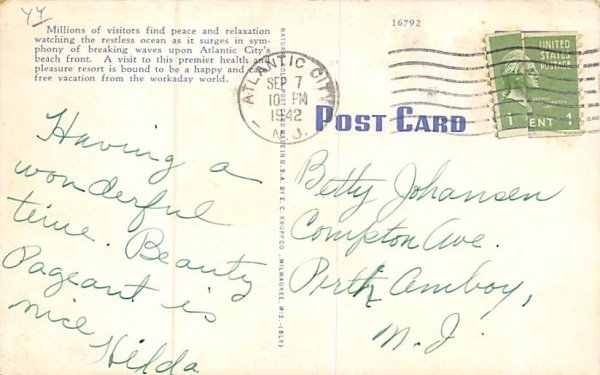 44
16792
Millions of visitors find peace and relaxation
watching the restless ocean as it surges in sym-
phony of breaking waves upon Atlantic City's
beach front. A visit to this premier health and
pleasure resort is bound to be a happy and care
free vacation from the workaday world.
ATLANTIC CITY
SEP 7
10 PM
1942
N.J.
UNITED
STATES
POSTAGE
1 ENT 1
POST CARD
MADE IN U.S.A. BY E. C. KROPP CO., MILWAUKEE, WIS. (BLT)
Having a
wonderful
time. Beauty
Pageant is
nice
Hilda
Betty Johansen
Compton Ave.
Perth Amboy,
N. J.